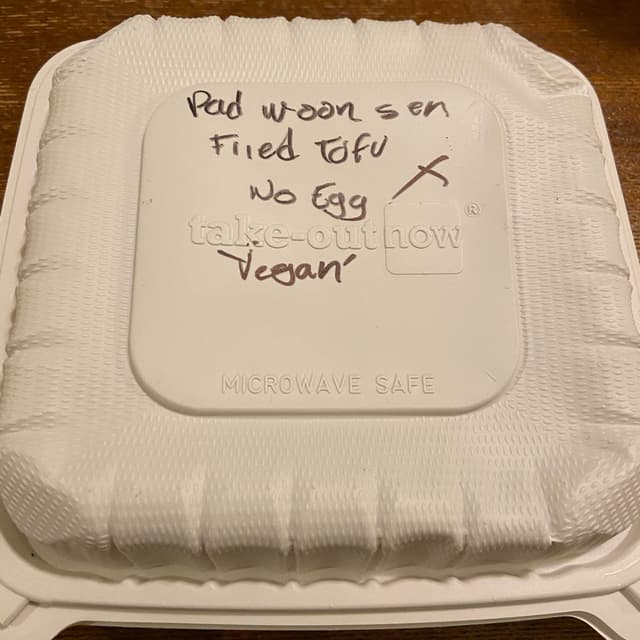 Pad woon sen
Fried Tofu
No Egg X
take-out now®
"Veegan"
MICROWAVE SAFE